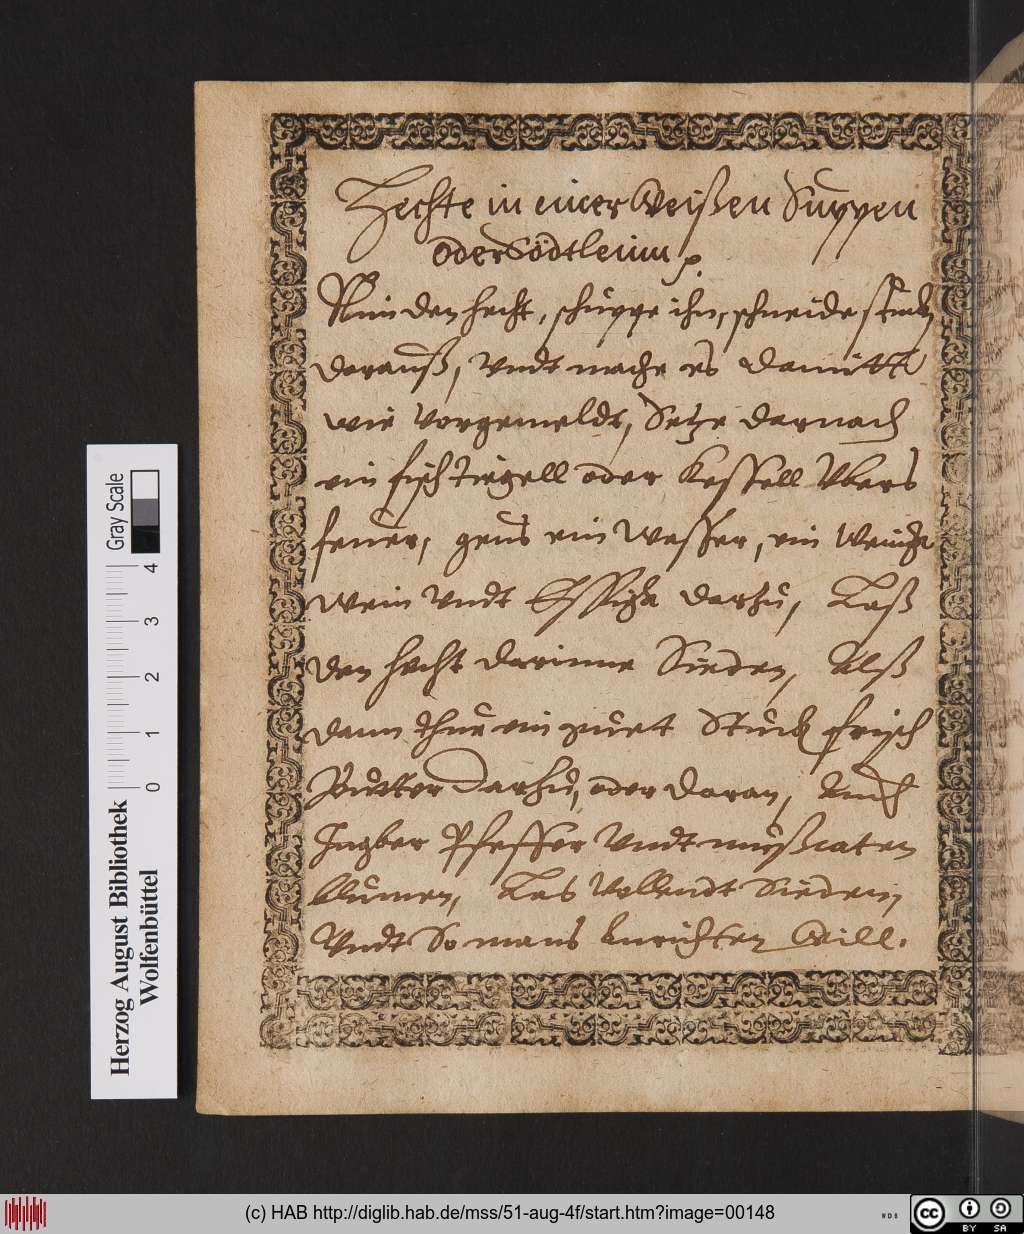 Hechte in einer Weißen Suppen
oder Södtleinn p.
Nim den hecht, schuppe ihn, schneide stuck
darauß, Vndt mache es damitt
wie vorgemeldt, Setze darnach
ein fisch Tiegell oder Kessell Vbers
feuer, geus ein Wasser, ein Wenig
Wein Vndt Essigk darzu, Laß
den hecht darinne Sieden, Alß
dann thue ein guet Stuck frisch
Butter darzu, oder daran, Auch
Ingber Pfeffer Vndt mußcaten
blumen, Las Vollendt Sieden,
Vndt So mans Anrichten Will.
Gray Scale
0 1 2 3 4
Herzog August Bibliothek
Wolfenbüttel
(c) HAB http://diglib.hab.de/mss/51-aug-4f/start.htm?image=00148
WDB
cc BY SA